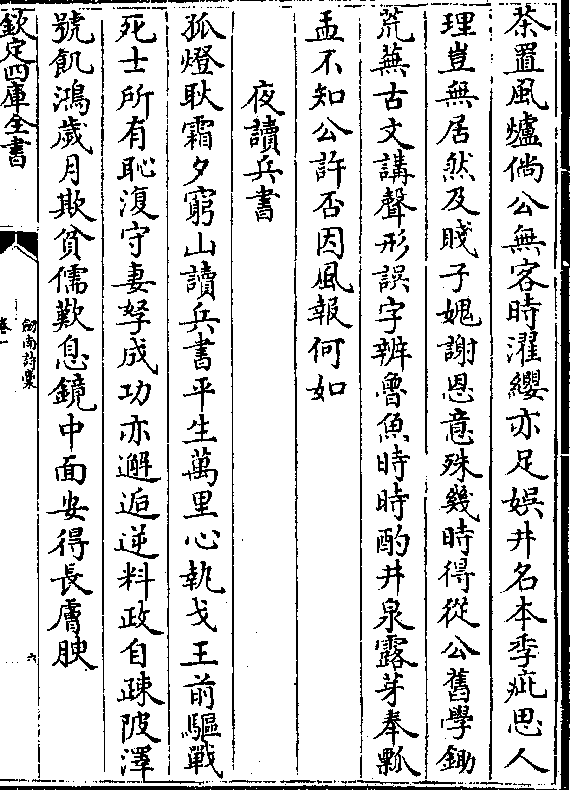 茶置風爐倘公無客時濯纓亦足娯井名本季疵思人
理豈無居然及賤子媿謝恩意殊幾時得從公舊學鋤
荒蕪古文講聲形誤字辨魯魚時時酌井泉露芽奉瓢
盂不知公許否因風報何如
夜讀兵書
孤燈耿霜夕窮山讀兵書平生萬里心執戈王前驅戰
死士所有恥復守妻孥成功亦邂逅逆料政自疎陂澤
號飢鴻歲月欺貧儒歎息鏡中面安得長膚腴
欽定四庫全書
劍南詩稾
卷一
六